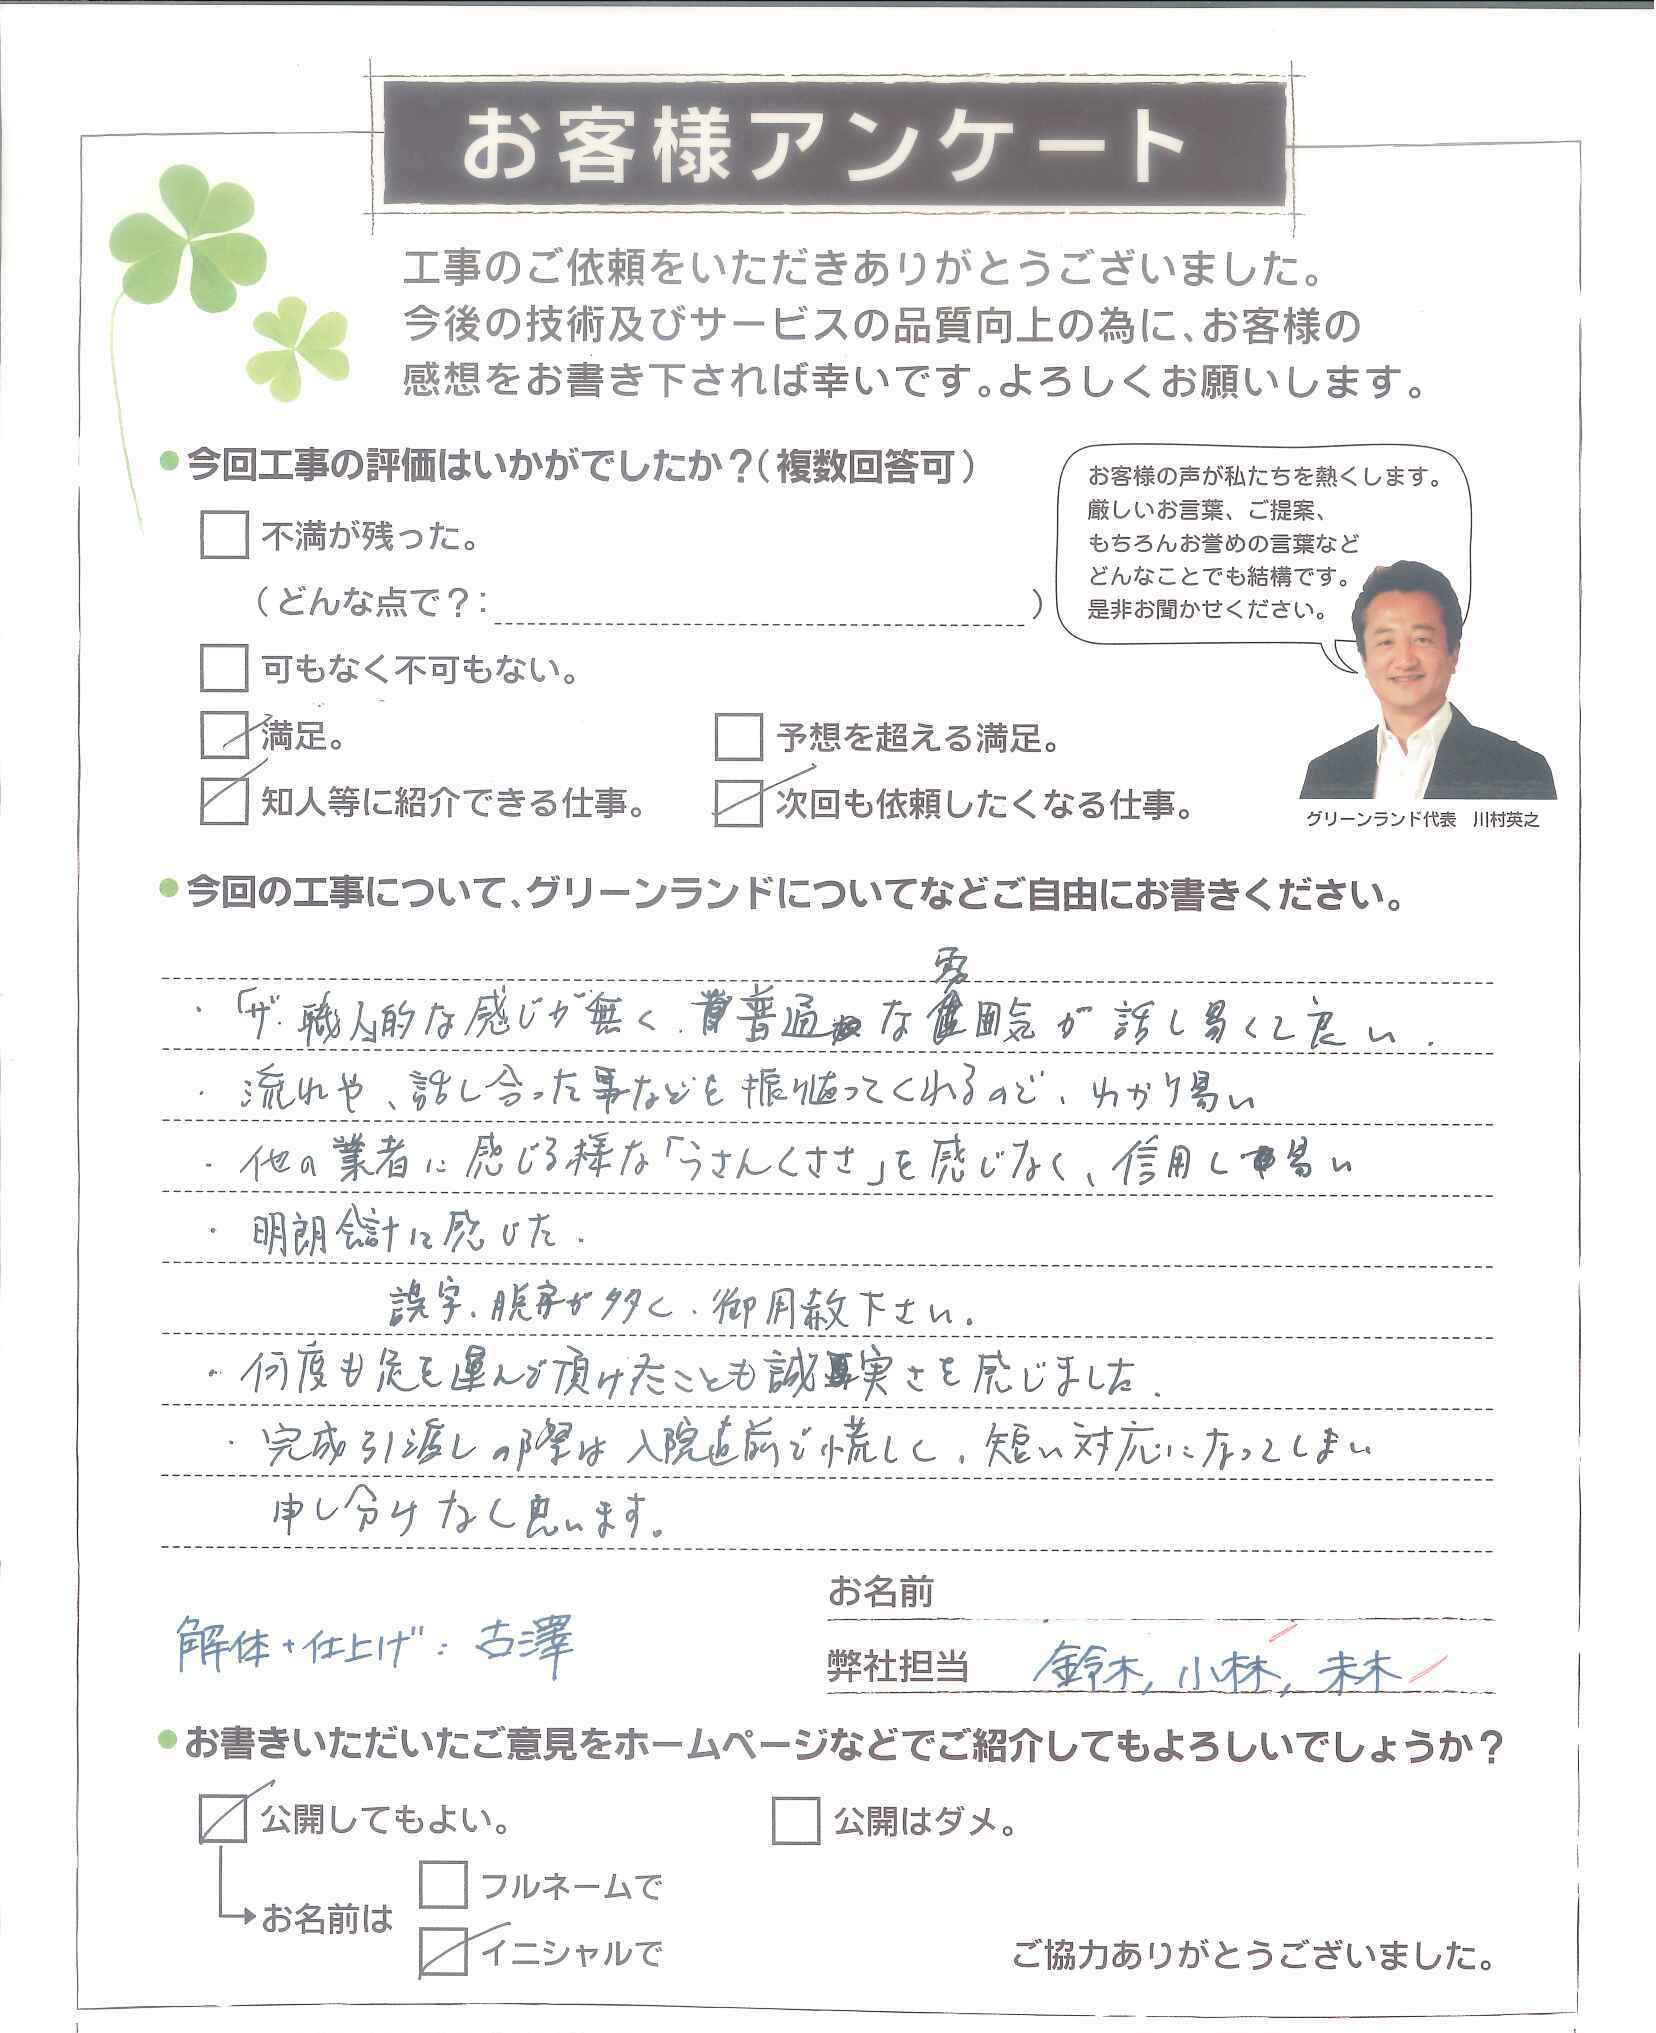 お客様アンケート
工事のご依頼をいただきありがとうございました。
今後の技術及びサービスの品質向上の為に、お客様の
感想をお書き下されば幸いです。よろしくお願いします。
今回工事の評価はいかがでしたか？（複数回答可）
不満が残った。
（どんな点で？：　　）
可もなく不可もない。
満足。
予想を超える満足。
知人等に紹介できる仕事。
次回も依頼したくなる仕事。
お客様の声が私たちを熱くします。
厳しいお言葉、ご提案、
もちろんお誉めの言葉など
どんなことでも結構です。
是非お聞かせください。
グリーンランド代表　川村英之
今回の工事について、グリーンランドについてなどご自由にお書きください。
・「ザ・職人」的な感じが無く、普通な雰囲気が話し易くて良い。
・流れや、話し合った事などを振り返ってくれるので、わかり易い
・他の業者に感じる様な「うさんくささ」を感じなく、信用し易い
・明朗会計に感じた。
誤字、脱字が多く、御用赦下さい。
・何度も足を運んで頂けたことも誠実さを感じました。
・完成引渡しの際は入院直前で慌しく、短い対応になってしまい
申し分けなく思います。
お名前
解体+仕上げ：古澤
弊社担当　鈴木, 小林, 未木
お書きいただいたご意見をホームページなどでご紹介してもよろしいでしょうか？
公開してもよい。
公開はダメ。
お名前は
フルネームで
イニシャルで
ご協力ありがとうございました。